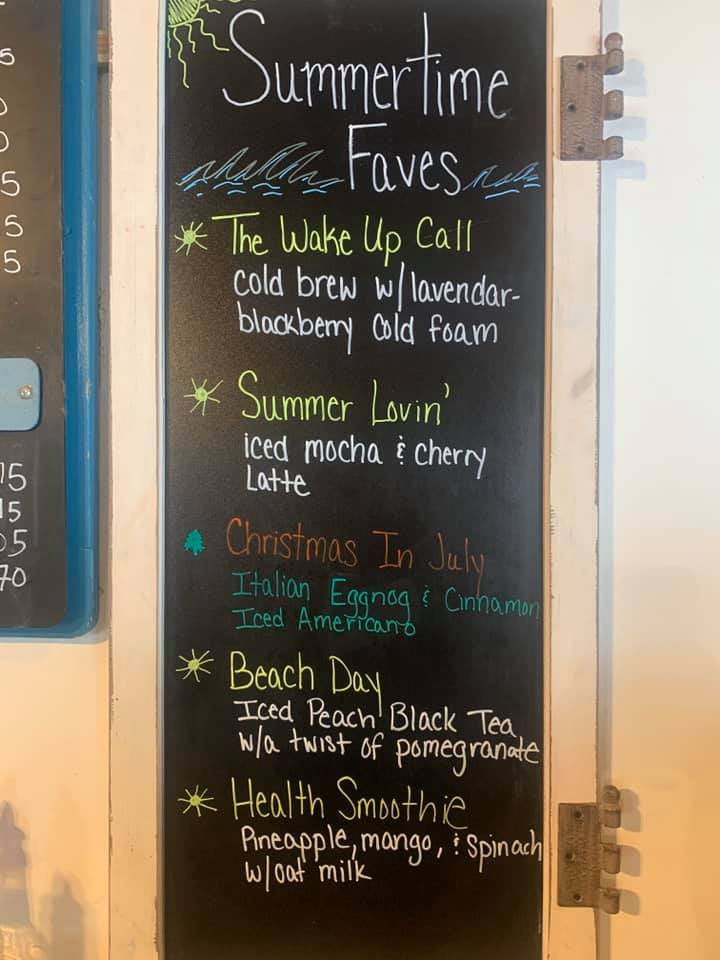 Summertime
Faves
The Wake Up Call
cold brew w/lavendar-
blackberry cold foam
Summer Lovin'
iced mocha & cherry
Latte
Christmas In July
Italian Eggnog & Cinnamon
Iced Americano
Beach Day
Iced Peach Black Tea
w/a twist of pomegranate
Health Smoothie
Pineapple, mango, & spinach
w/oat milk